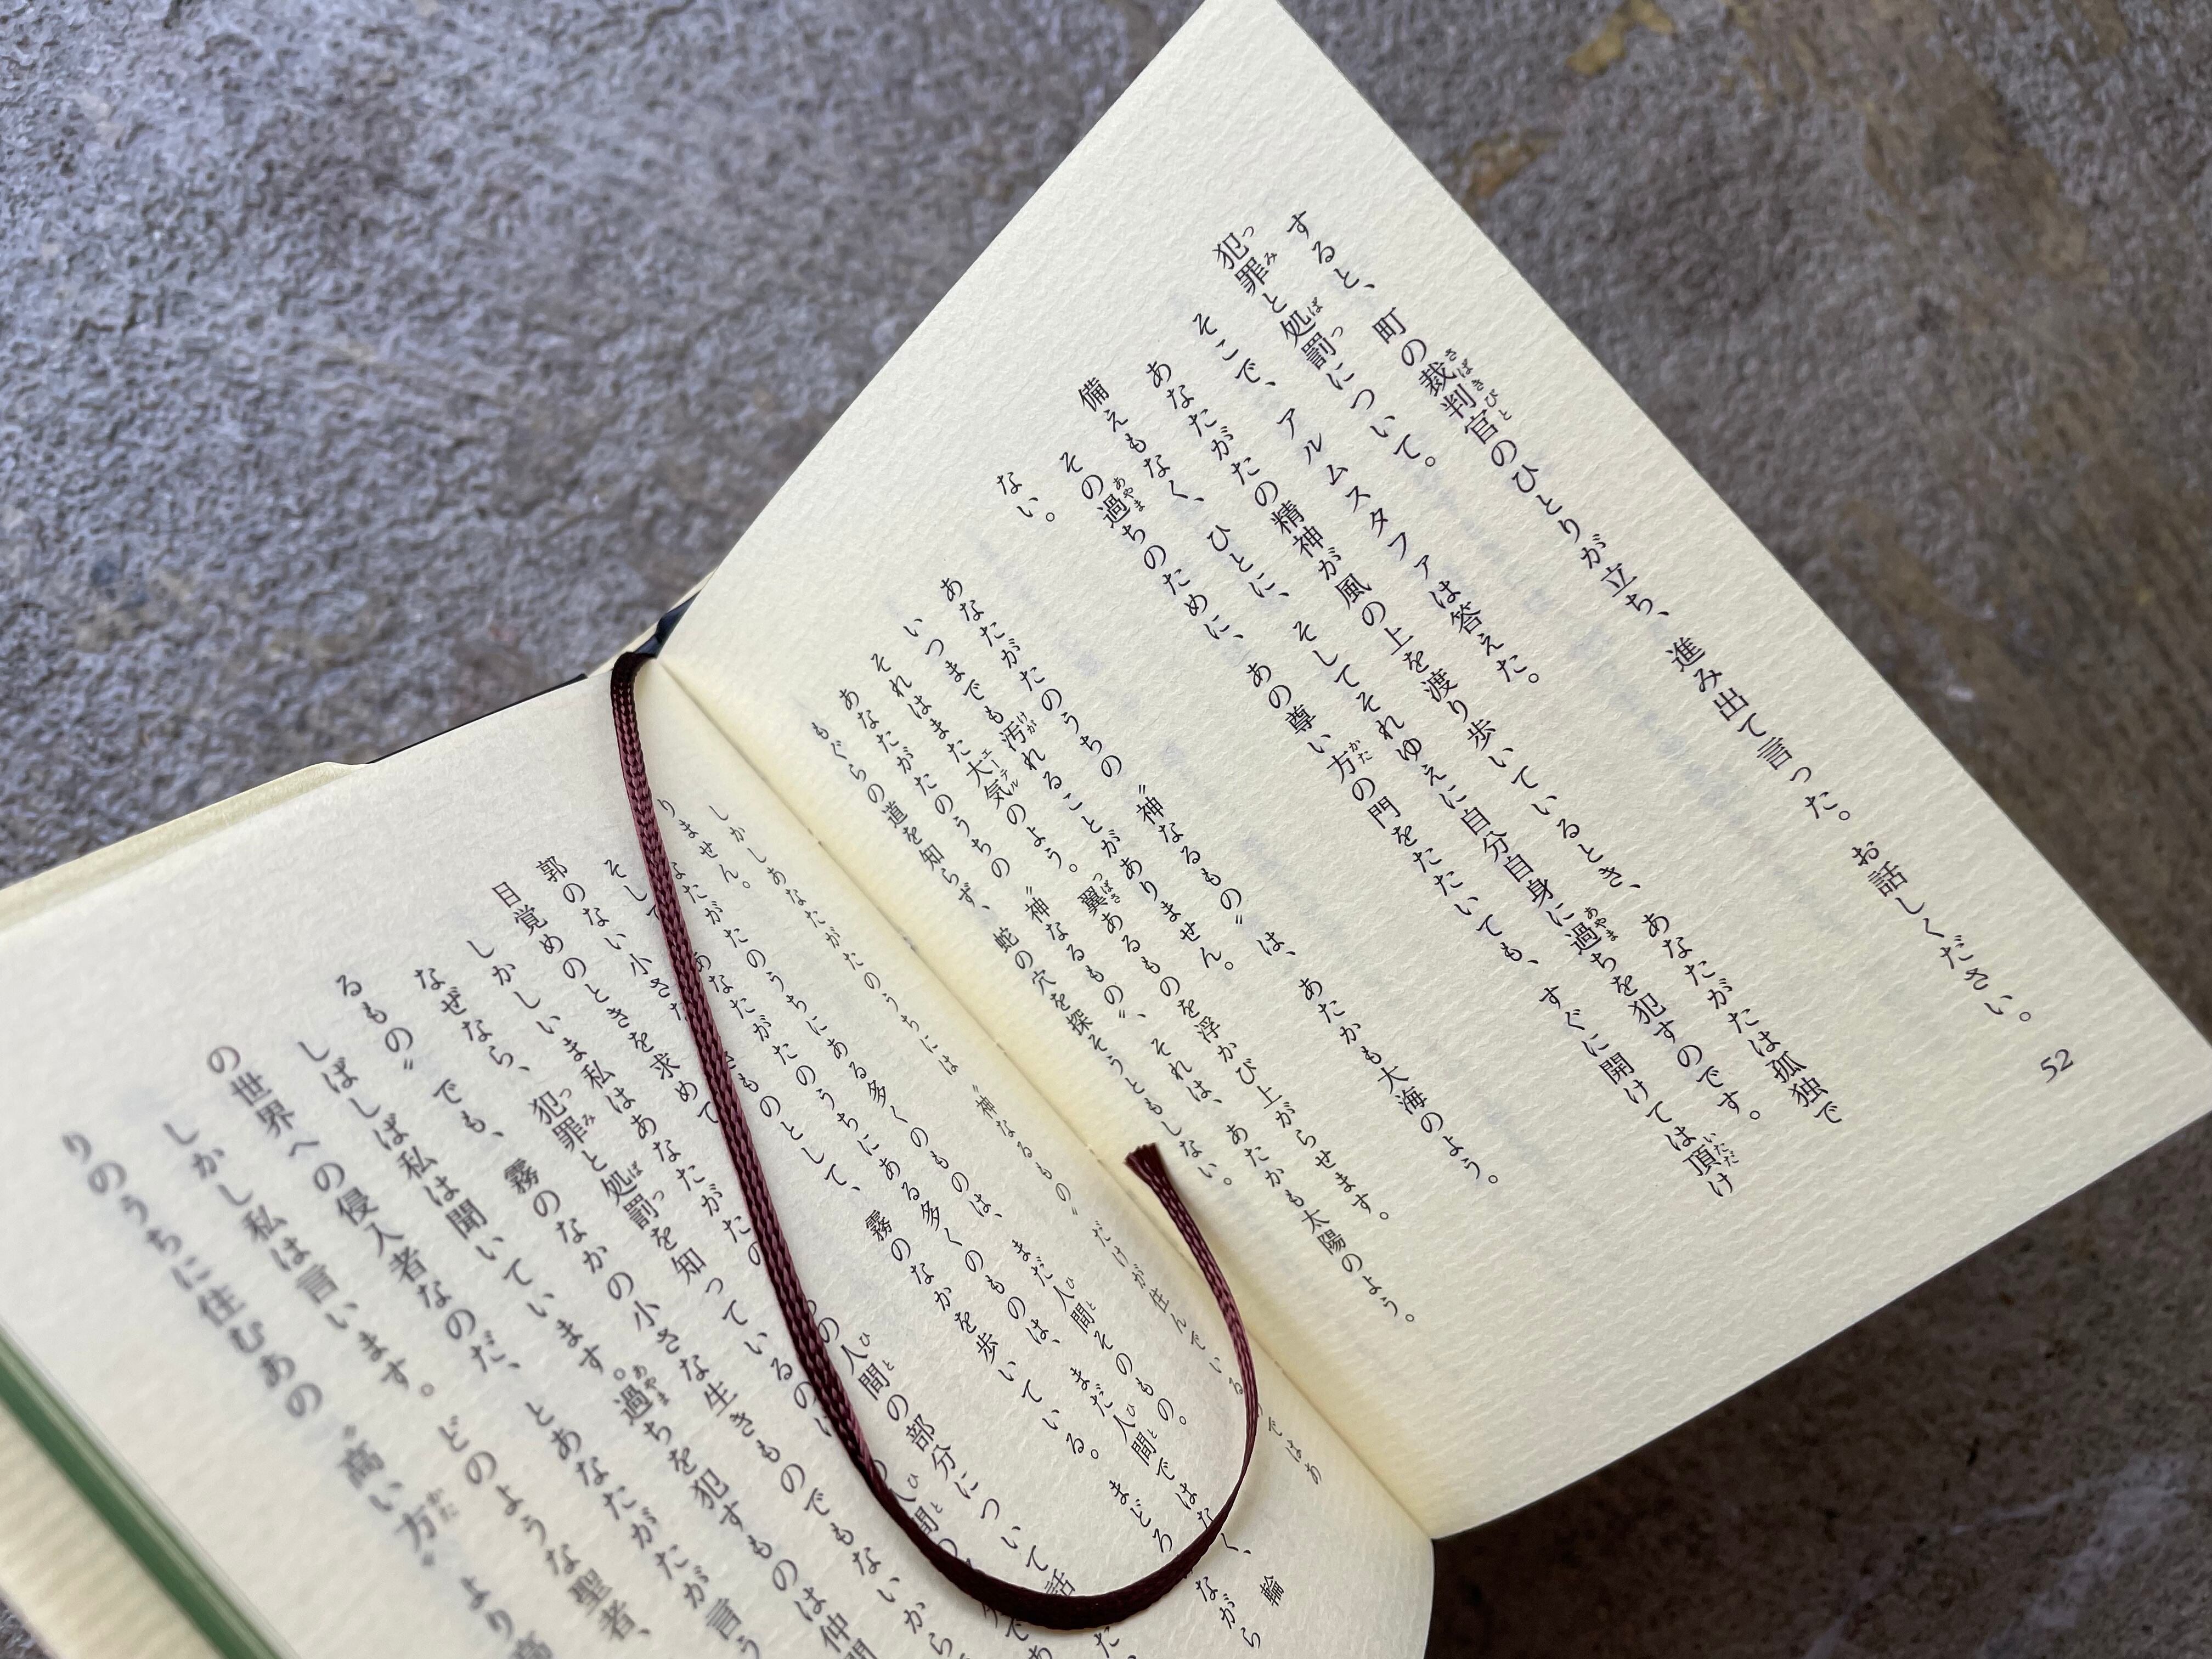 すると、町の裁判官のひとりが立ち、進み出て言った。お話しください。
犯罪と処罰について。
そこで、アルムスタファは答えた。
あなたがたの精神が風の上を渡り歩いているとき、あなたがたは孤独で
備えもなく、ひとに、そしてそれゆえに自分自身に過ちを犯すのです。
その過ちのために、あの尊い方の門をたたいても、すぐに開けては頂け
ない。
あなたがたのうちの〝神なるもの〟は、あたかも大海のよう。
いつまでも汚れることがありません。
それはまた大気のよう。翼あるものを浮かび上がらせます。
あなたがたのうちの〝神なるもの〟、それは、あたかも太陽のよう。
もぐらの道を知らず、蛇の穴を探そうともしない。
52
しかしあなたがたのうちには〝神なるもの〟だけが住んでいる ではあ
りません。
なたがたのうちにある多くのものは、まだ人間そのもの。
そして あなたがたのうちにある多くのものは、まだ人間ではなく、輪
郭のない小さな きものとして、霧のなかを歩いている。まどろ ながら
目覚めのときを求めて
しかしいま私はあなたがたの の人間の部分について話
なぜなら、犯罪と処罰を知っているのは 人間の であ
るもの〟でも、霧のなかの小さな生きものでもないから
しばしば私は聞いています。過ちを犯すものは仲間
の世界への侵入者なのだ、とあなたがたが言う
しかし私は言います。どのような聖者、
りのうちに住むあの〝高い方〟より高